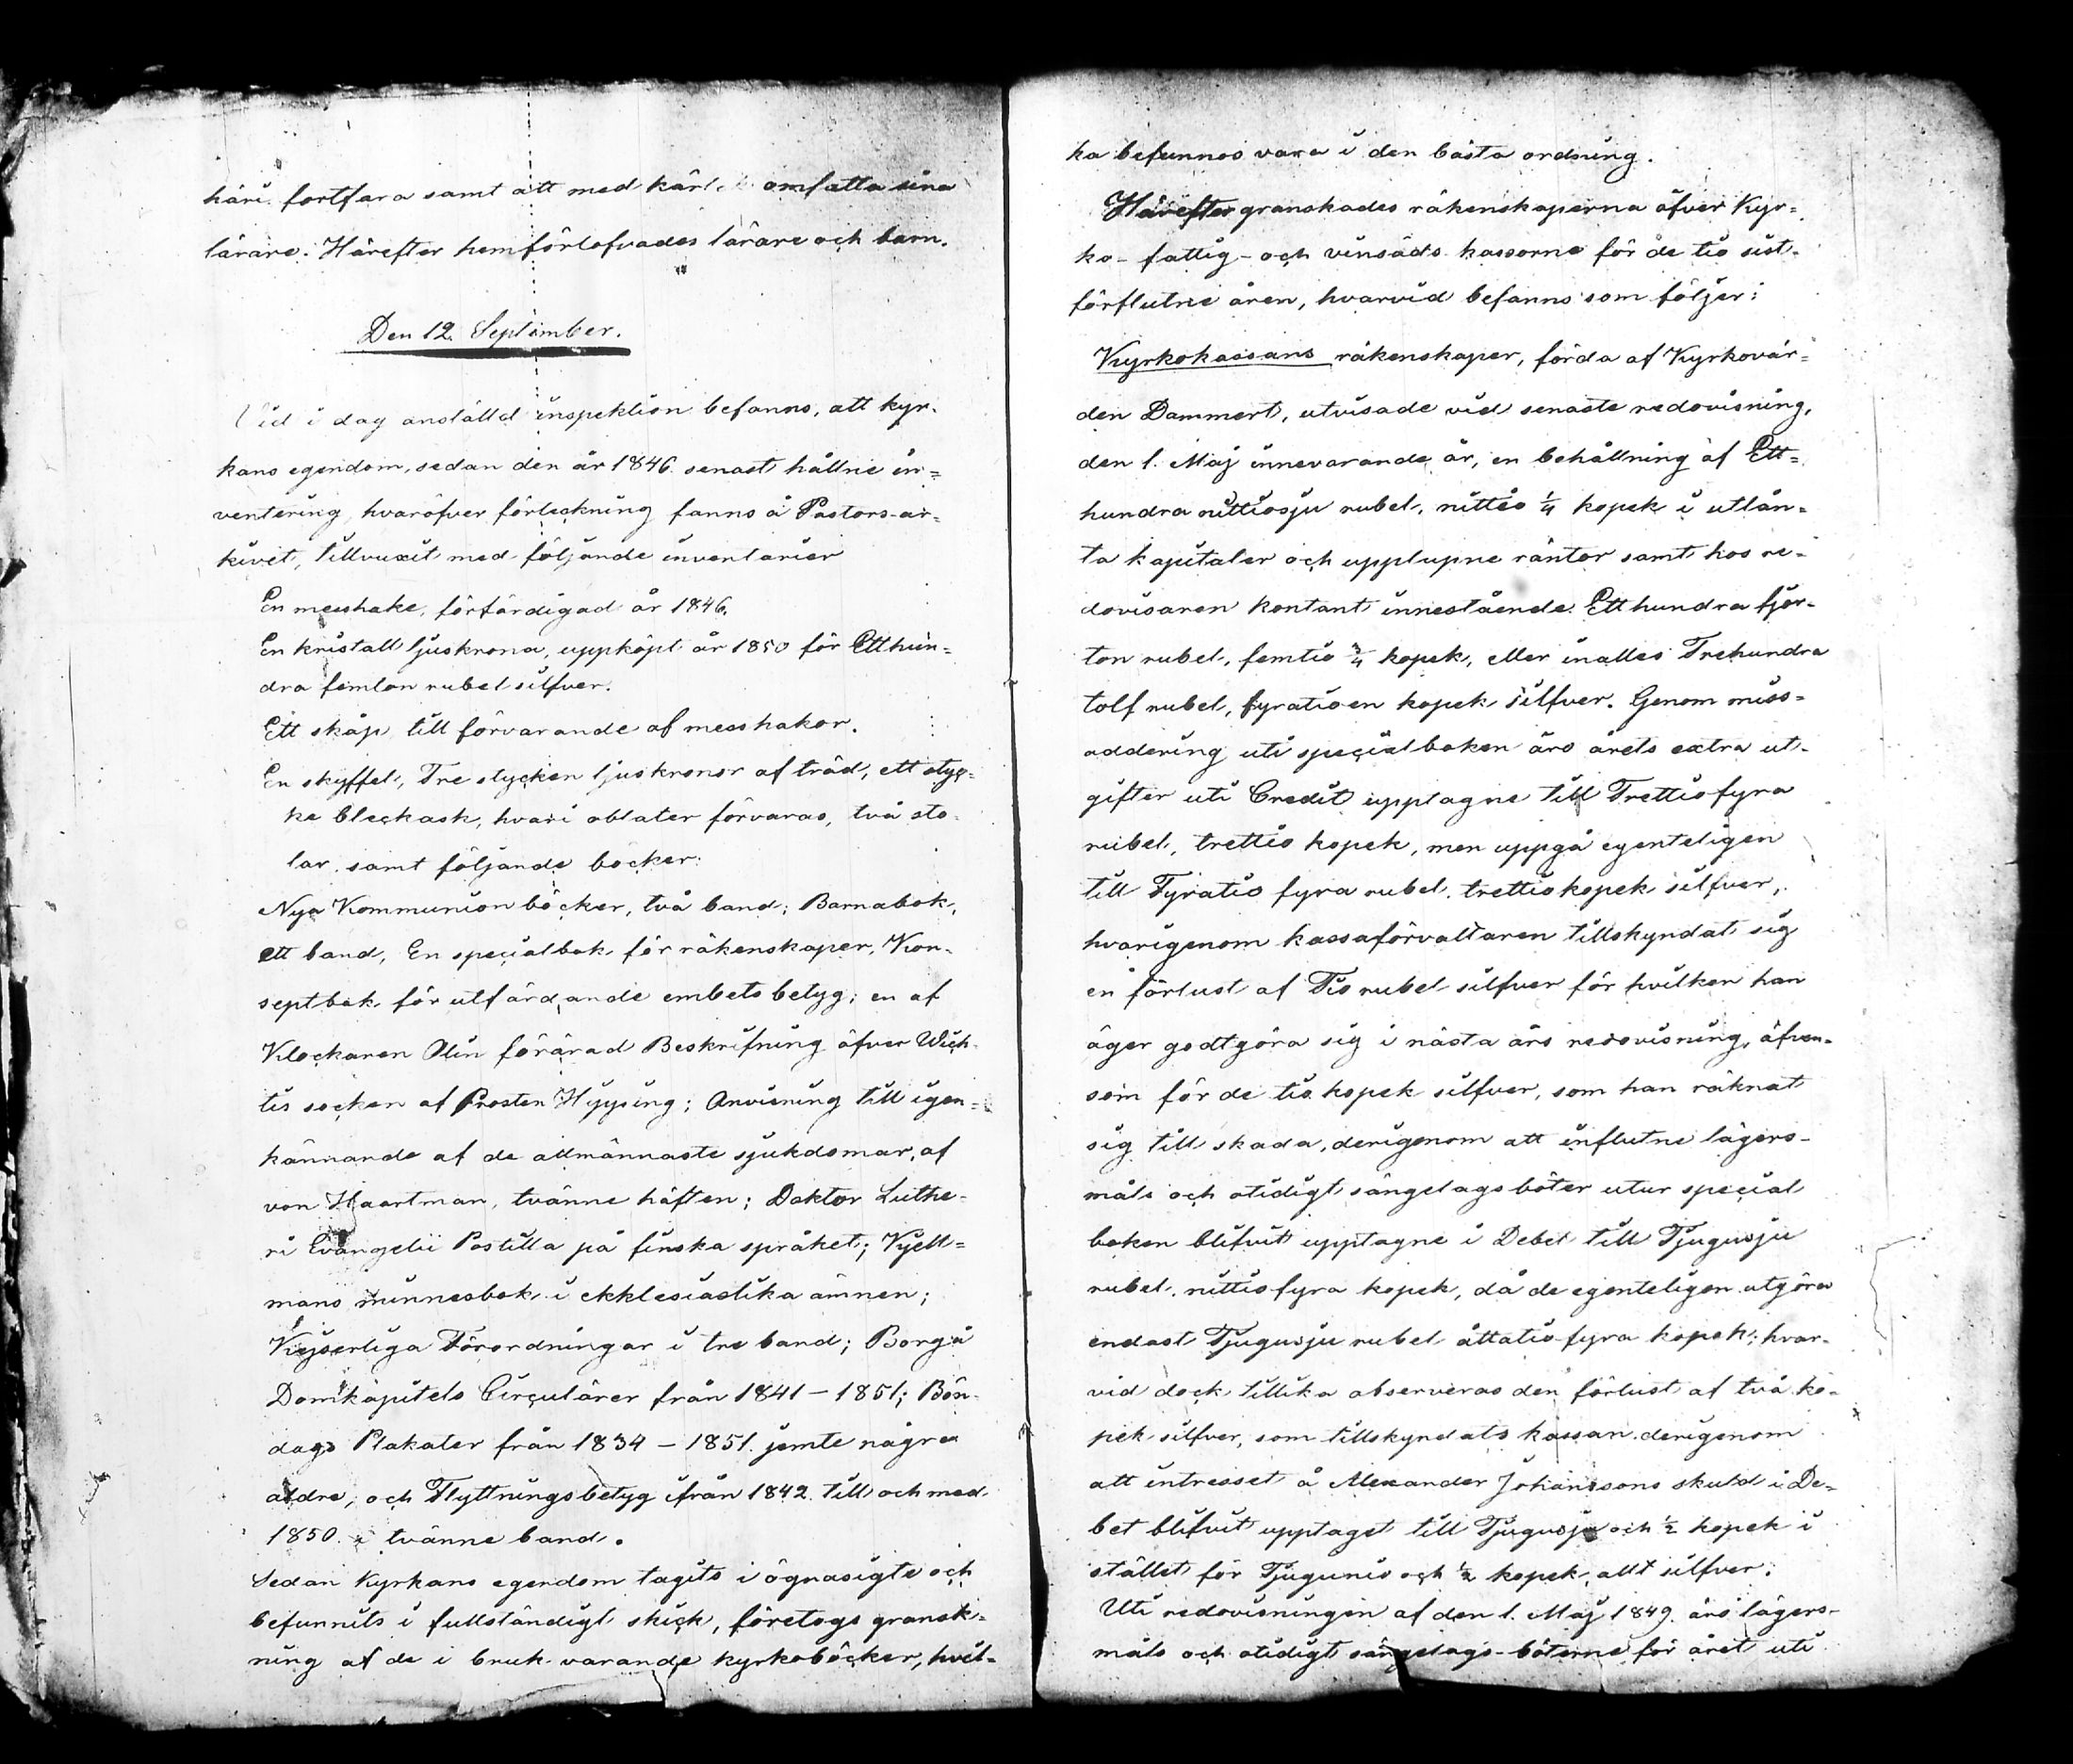 häri fortfara samt att med kärlek omfatta sina
lärare. Härefter hemförlofvades lärare och barn.
Den 12. September.
Vid i dag anställd inspektion befanns, att kyr-
kans egendom, sedan den år 1846 senast hållne in-
ventering, hvaröfver förteckning fanns å Pastors-ar-
kivet, tillvuxit med följande inventarier
En messhake, förfärdigad år 1846.
En kristall ljuskrona, uppköpt år 1850 för Etthun-
dra femton rubel silfver.
Ett skåp till förvarande af messhakor.
En skyffel, Tre stycken ljuskronor af träd, ett styc-
ke bleckask, hvari oblater förvaras, två sto-
lar samt följande böcker:
Nya Kommunion böcker, två band; Barnabok,
ett band, En specialbok för räkenskaper, Kon-
septbok för utfärdande embets betyg; en af
Klockaren Olin förärad Beskrifning öfver Wich-
tis socken af Prosten Hipping; Anvisning till igen-
kännande af de allmännaste sjukdomar, af
von Haartman, tvänne häften; Doktor Luthe-
ri Evangelii Postilla på finska språket; Kjell-
mans minnesbok i ekklesiastika ämnen;
Kejserliga Förordningar i tre band; Borgå
Domkapitels Circulärer från 1841 - 1851; Bön-
dags Plakater från 1834 - 1851. jemte några
äldre, och Flyttningsbetyg ifrån 1842 till och med
1850 i tvänne band.
Sedan Kyrkans egendom tagits i ögnasigte och
befunnits i fullständigt skick, företogs gransk-
ning af de i bruk varande kyrkoböcker, hvil-
ka befunnos vara i den bästa ordning.
Härefter granskades räkenskaperna öfver Kyr-
ko- fattig- och vinsäds kassorne för de tio sist-
förflutne åren, hvarvid befanns som följer:
Kyrkokassans räkenskaper, förda af Kyrkovär-
den Dammert, utvisade vid senaste redovisning,
den 1. Maj innevarande år, en behållning af Ett-
hundra nittiosju rubel, nittio 1/4 kopek i utlån-
ta kapitaler och upplupne räntor samt hos re-
dovisaren kontant innestående Etthundra fjor-
ton rubel, femtio 3/4 kopek, eller inalles Trehundra
tolf rubel, fyratioen kopek silfver. Genom miss-
addering uti specialboken äro årets extra ut-
gifter uti Credit upptagne till Trettiofyra
rubel, trettio kopek, men uppgå egenteligen
till Fyratio fyra rubel trettio kopek silfver,
hvarigenom kassaförvaltaren tillskyndat sig
en förlust af Tio rubel silfver för hvilken han
äger godtgöra sig i nästa års redovisning, äfven-
som för de tio kopek silfver, som han räknat
sig till skada, derigenom att influtne lägers-
måls och otidigt sängelags böter utur special
boken blifvit upptagne i Debet till Tjugusju
rubel, nittiofyra kopek, då de egenteligen utgöra
endast Tjugusju rubel åttatio fyra kopek; hvar-
vid dock tillika observeras den förlust af två ko-
pek silfver, som tillskyndats kassan derigenom
att intresset å Alexander Johanssons skuld i De-
bet blifvit upptaget till Tjugusju och 1/2 kopek i
stället för Tjugunio och 1/2 kopek, allt silfver.
Uti redovisningen af den 1. Maj 1849. äro lägers-
måls och otidigt sängelags-böterne för året uti